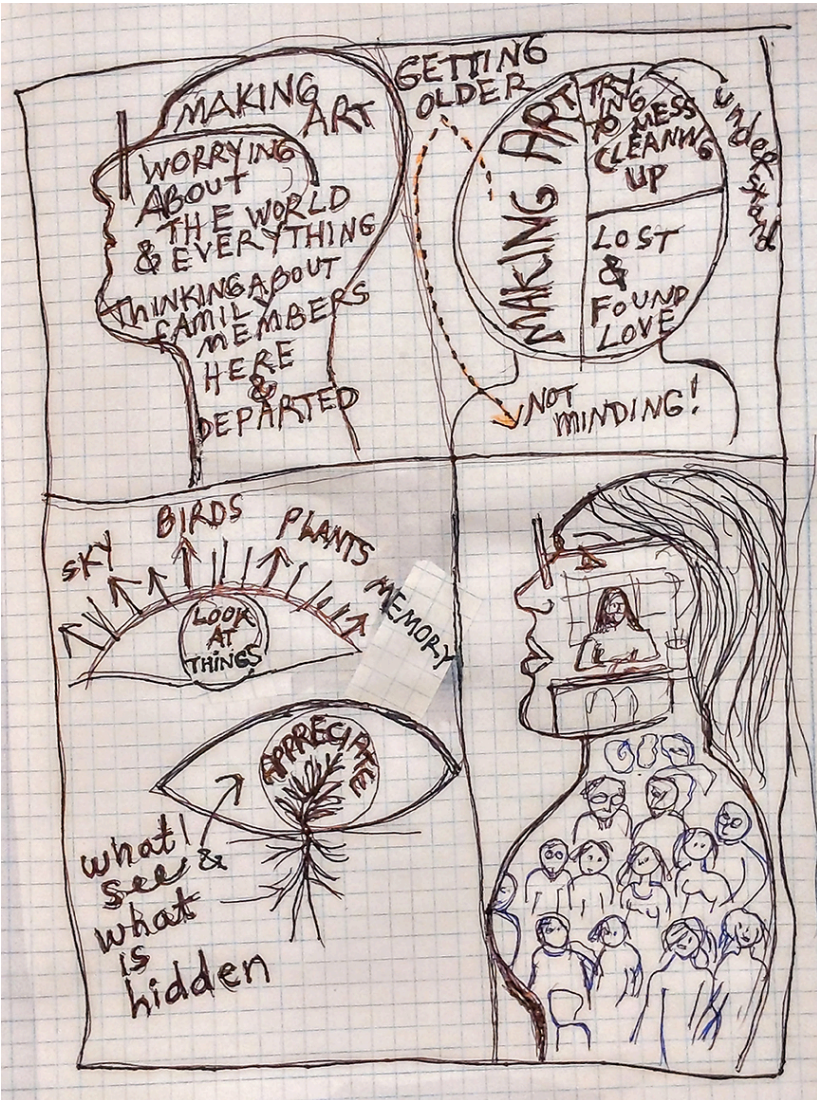 MAKING
ART
WORRYING
ABOUT
THE WORLD
& EVERYTHING
THINKING ABOUT
FAMILY
MEMBERS
HERE
&
DEPARTED
GETTING
OLDER
MAKING ART
TRY
ING
TO MESS
CLEANING
UP
understand
LOST
&
FOUND
LOVE
NOT
MINDING!
SKY
BIRDS
PLANTS
MEMORY
LOOK
AT
THINGS
APPRECIATE
what I
see &
what
is
hidden